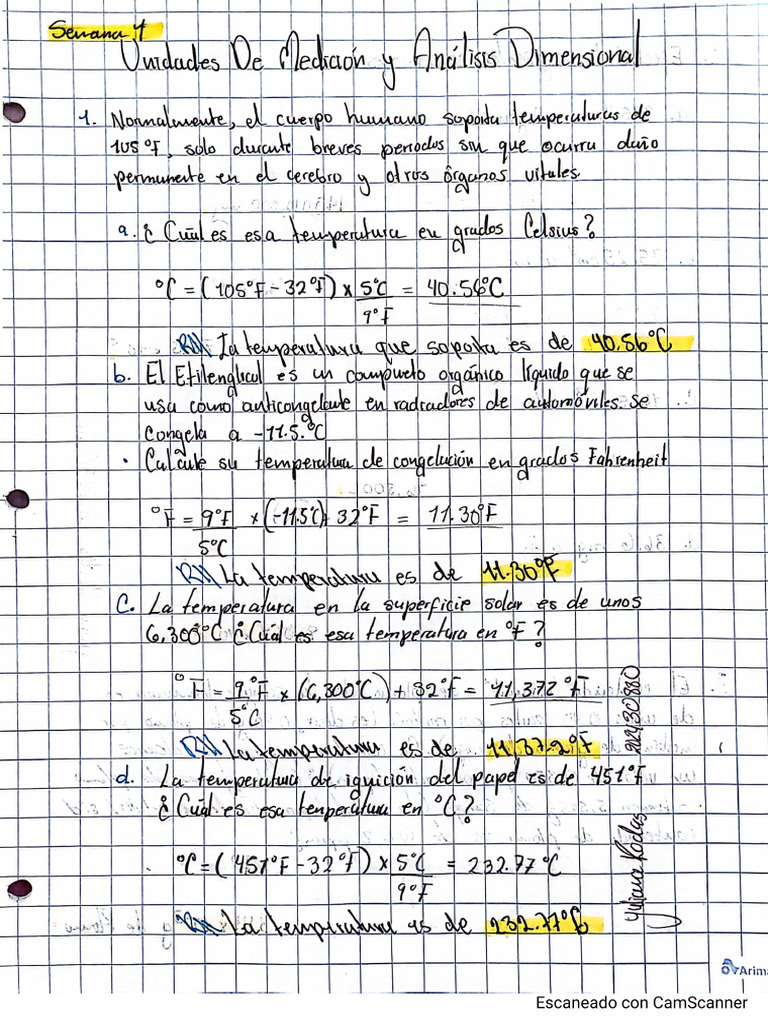 Semana 1
Unidades De Medición y Análisis Dimensional
1. Normalmente, el cuerpo humano soporta temperaturas de
105°F, solo durante breves periodos sin que ocurra daño
permanente en el cerebro y otros órganos vitales
a. ¿Cuál es esa temperatura en grados Celsius?
°C = (105°F - 32°F) × 5°C = 40.56°C
9°F
R// La temperatura que soporta es de 40.56°C
b. El Etilenglicol es un compuesto orgánico líquido que se
usa como anticongelante en radiadores de automóviles. se
congela a -11.5.°C
• Calcule su temperatura de congelación en grados Fahrenheit
°F = 9°F × (-11.5°C) + 32°F = 11.30°F
5°C
R// La temperatura es de 11.30°F
C. La temperatura en la superficie solar es de unos
6,300°C ¿Cuál es esa temperatura en °F?
°F = 9°F × (6,300°C) + 32°F = 11,372°F
5°C
R// La temperatura es de 11,372°F
d. La temperatura de ignición del papel es de 451°F
¿Cuál es esa temperatura en °C?
°C = (451°F - 32°F) × 5°C = 232.77°C
9°F
R// La temperatura es de 232.77°C
Yuliana Rodas
Arim
Escaneado con CamScanner